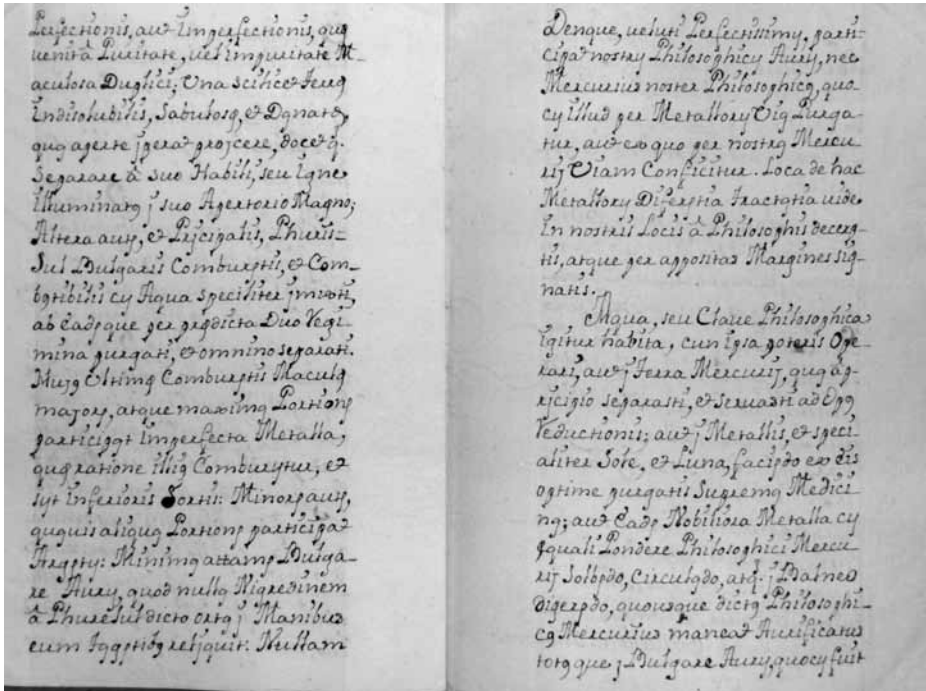 Perfectionis, aut Imperfectionis, quę
venit à Puritate, vel impuritate M-
aculosa Duplici; Una scilicet Terrę
Indisolubilis, Sabulosę, et Dgnatę,
quę aperte jpera projcere, docet q.
Separare à Suo Habili, seu Igne
illuminatę j suo Apertorio Magno;
Altera autę, et Prjcipalis, Phuris=
Sul Bulgaris Comburętis, et Com-
bętibilis cy Aqua specilitex jmixti,
ab Eadęque per prędicta Duo Regi
mina purgati, et omnino separati.
Mujg Ultimę Comburętis Maculę
majorę, atque maximę Portionę
participąt Imperfecta Metalla,
quę ratione illię Comburytur, et
syt inferioris Sortis: Minorę autę,
quąuis aliquę Portionę participat
Argęty: Minimą attamę Bulga-
re Aury, quod nullą Nigredinem
à Phure Sul dicto ortą j Manibus
cum Tąąętibę reljquit. Nullam
Denque, veluti Perfectissimy, parti-
cipat nostry Philosophicy Aury, nec
Mercurius noster Philosophicę, quo-
cy illud per Metallory Vią Purga
tur, aut ex quo per nostrę Mercu
rij Viam Conficitur. Loca de hac
Metallory Differętia tractątia vide
in nostris Locis à Philosophis decerp-
tis, atque per appositas Margines sig-
natis.
Aqua, seu Clave Philosophica
igitur habita, cum ipsa poteris Ope-
rari, aut j Terra Mercurij, quą ą p-
rjcipio separasti, et servasti ad Opę
Reductionis; aut j Metallis, et speci
aliter Sole, et Luna, faciędo ex eis
optime purgatis Supremą Medici
ną; aut Eadę Nobiliora Metalla cy
ęquali Pondere Philosophici Mercu
rij Solbędo, Circulądo, atq. j Balneo
digerędo, quousque dictę Philosophi-
cę Mercurius maneat Aurificatus
totę que j Bulgare Aury, quocy fuit